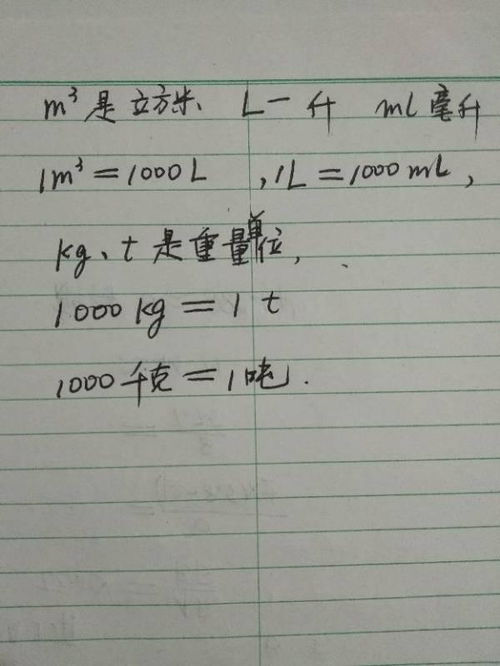 m³是立方米、 L一升 ml毫升
1m³=1000L ,1L=1000mL,
kg、t是重量单位,
1000kg=1t
1000千克=1吨.